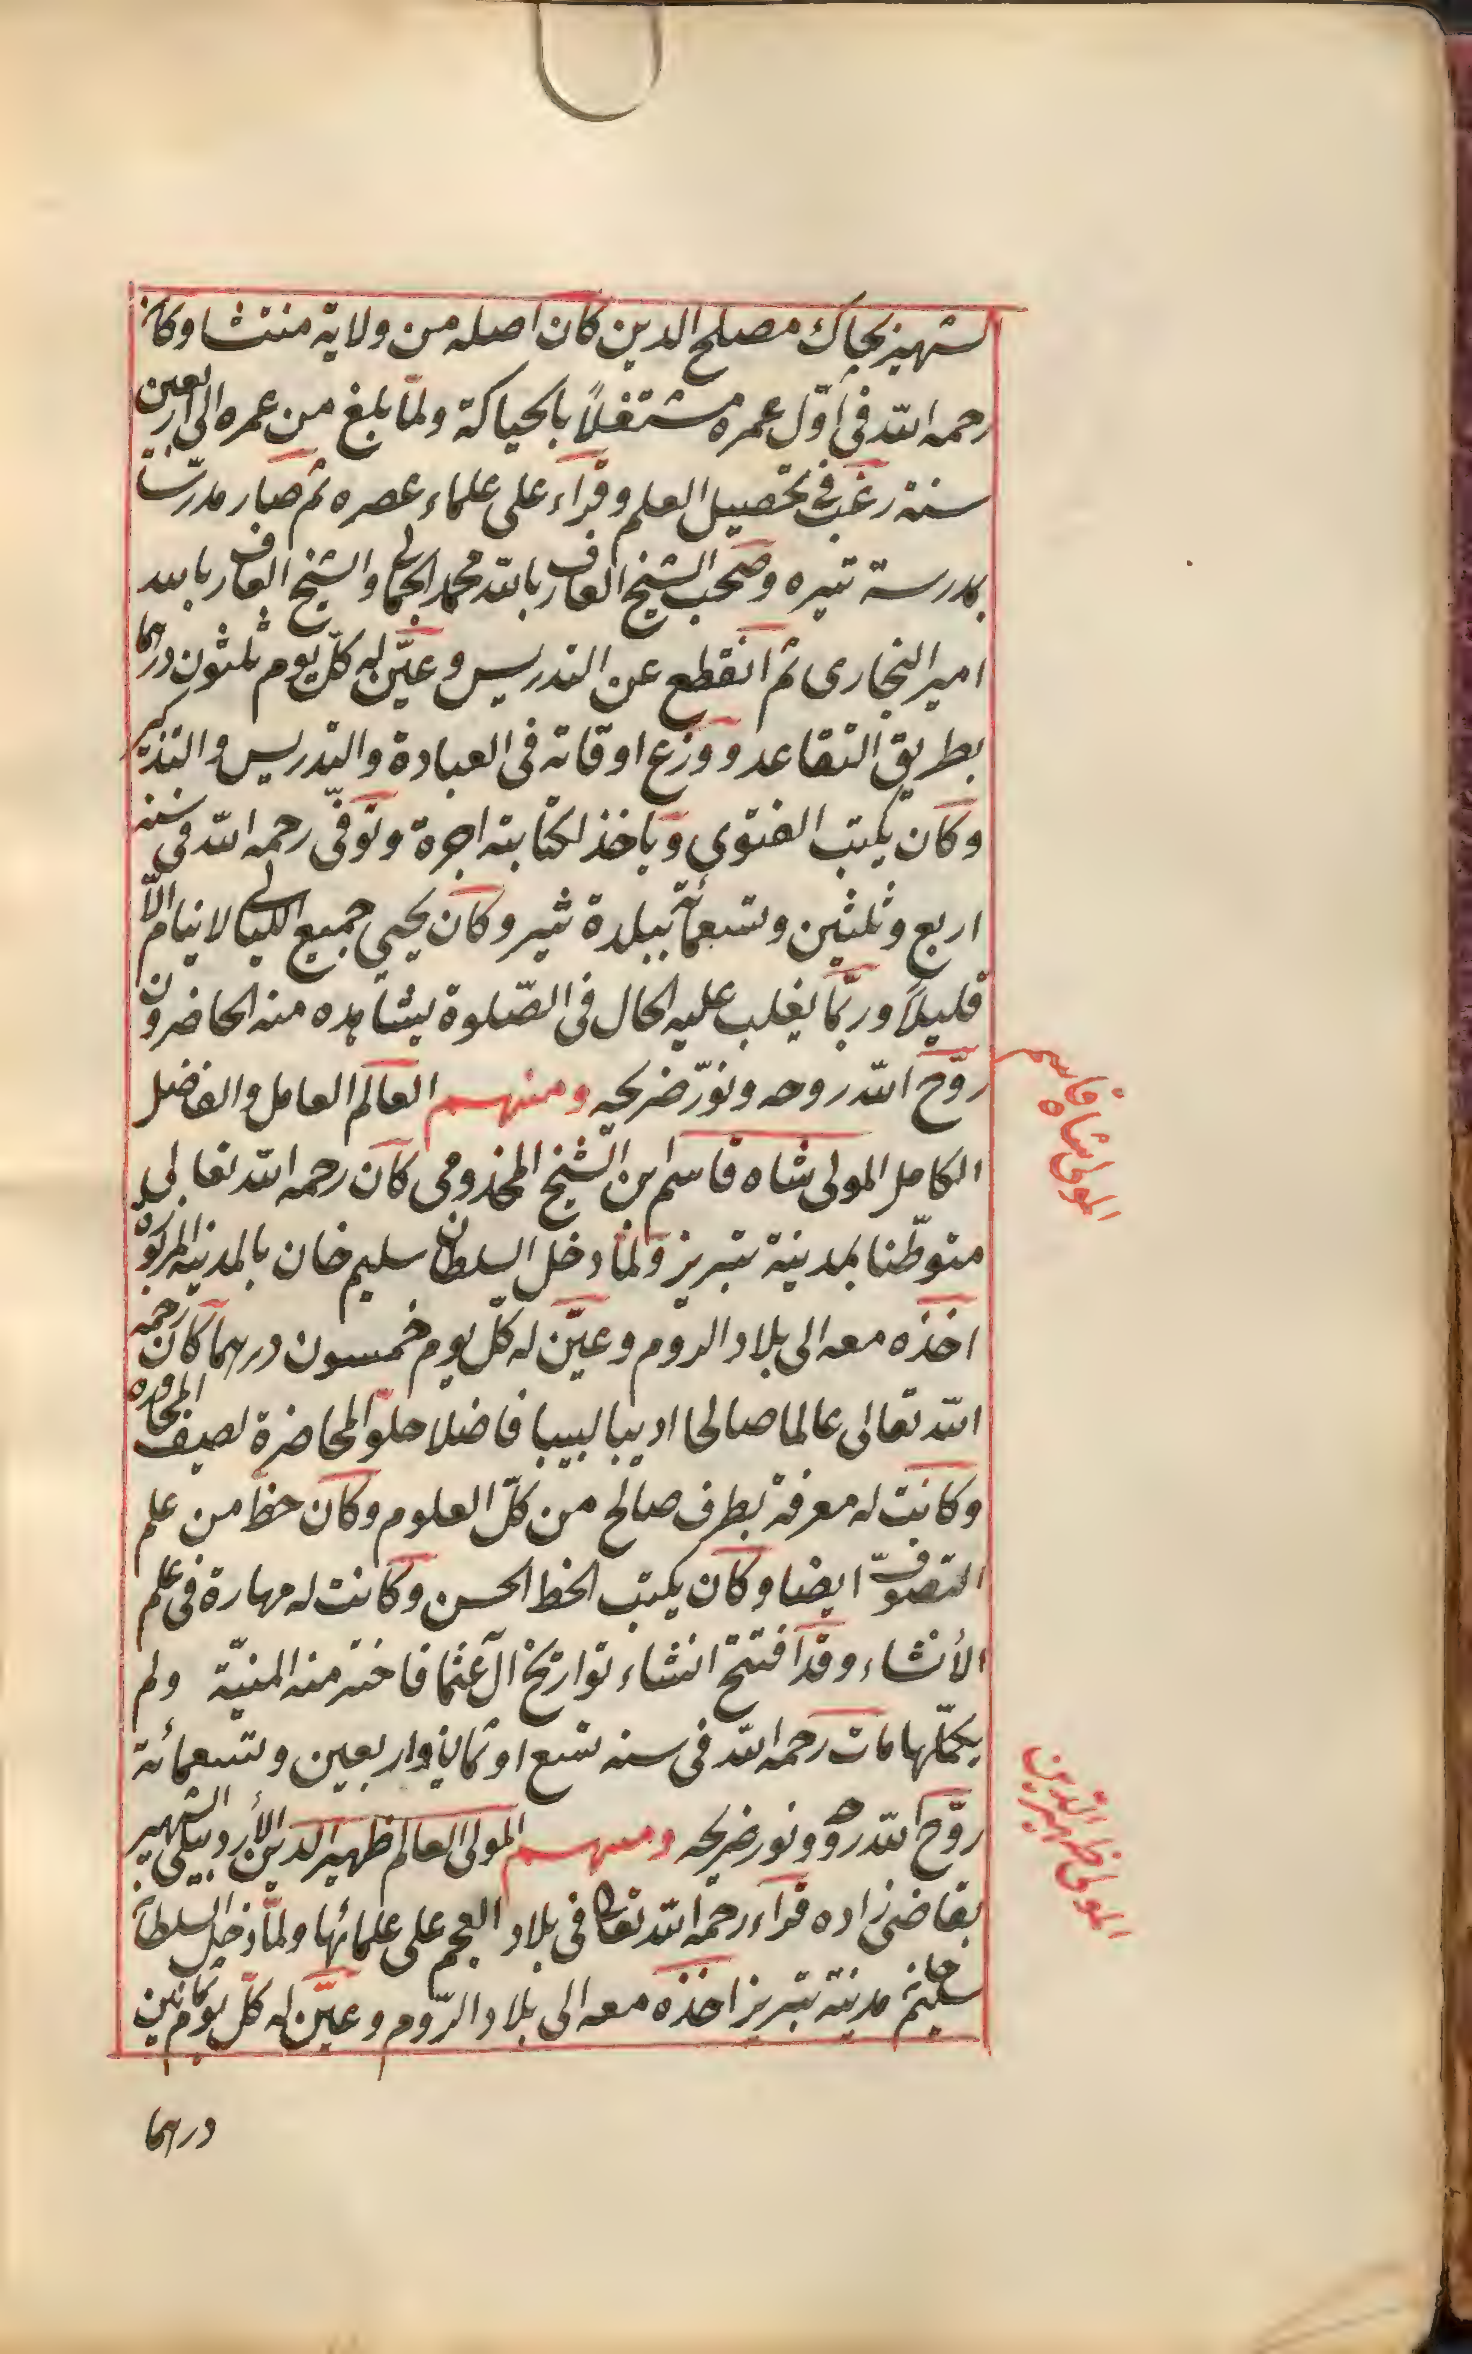 الشهير بجاك مصلح الدين كان اصله من ولاية منتشا وكان
رحمه الله فى اوّل عمره مشتغلاً بالحياكة ولمّا بلغ من عمره الى اربعين
سنة رغب فى تحصيل العلم وقراء على علماء عصره ثم صار مدرّسا
بمدرسة تيره وصحب الشيخ العارف بالله محمد الجمالى والشيخ العارف بالله
امير البخارى ثم انقطع عن التدريس وعيّن له كلّ يوم ثلثون درهما
بطريق التقاعد ووزع اوقاته فى العبادة والتدريس والتذكير
وكان يكتب الفتوى وياخذ لكتابته اجرة وتوفّى رحمه الله فى سنه
اربع وثلثين وتسعمائة ببلدة تير وكان يحيى جميع الليالى لا ينام الاّ
قليلاً وربّما يغلب عليه الحال فى الصّلوة يشاهده منه الحاضرون
روّح الله روحه ونوّر ضريحه ومنهم العالم العامل والفاضل
المولى شاه قاسم
الكامل المولى شاه قاسم بن الشيخ المخذومى كان رحمه الله تعالى
متوطّنا بمدينة تبريز ولمّا دخل السلطان سليم خان بالمدينة المزبورة
اخذه معه الى بلاد الروم وعيّن له كلّ يوم خمسون درهما كان رحمه
الله تعالى عالما صالحا اديبا لبيبا فاضلا حلو المحاضرة لطيف المحاوره
وكانت له معرفة بطرف صالح من كلّ العلوم وكان حظّ من علم
التصوّف ايضا وكان يكتب الخط الحسن وكانت له مهارة فى علم
الأنشاء وقد افتتح انشاء تواريخ آل عثمان فاخترمنه المنيّة ولم
يكمّلها مات رحمه الله فى سنه تسع او ثمان واربعين وتسعمائة
المولى ظهير الدين
روّح الله روحه ونور ضريحه ومنهم المولى العالم ظهير الدين الأردبيلى الشهير
بقاضى زاده قراء رحمه الله تعالى فى بلاد العجم على علمائها ولمّا دخل السلطان
سليم خان مدينة تبريز اخذه معه الى بلاد الرّوم وعيّن له كلّ يوم ثمانين
درهما